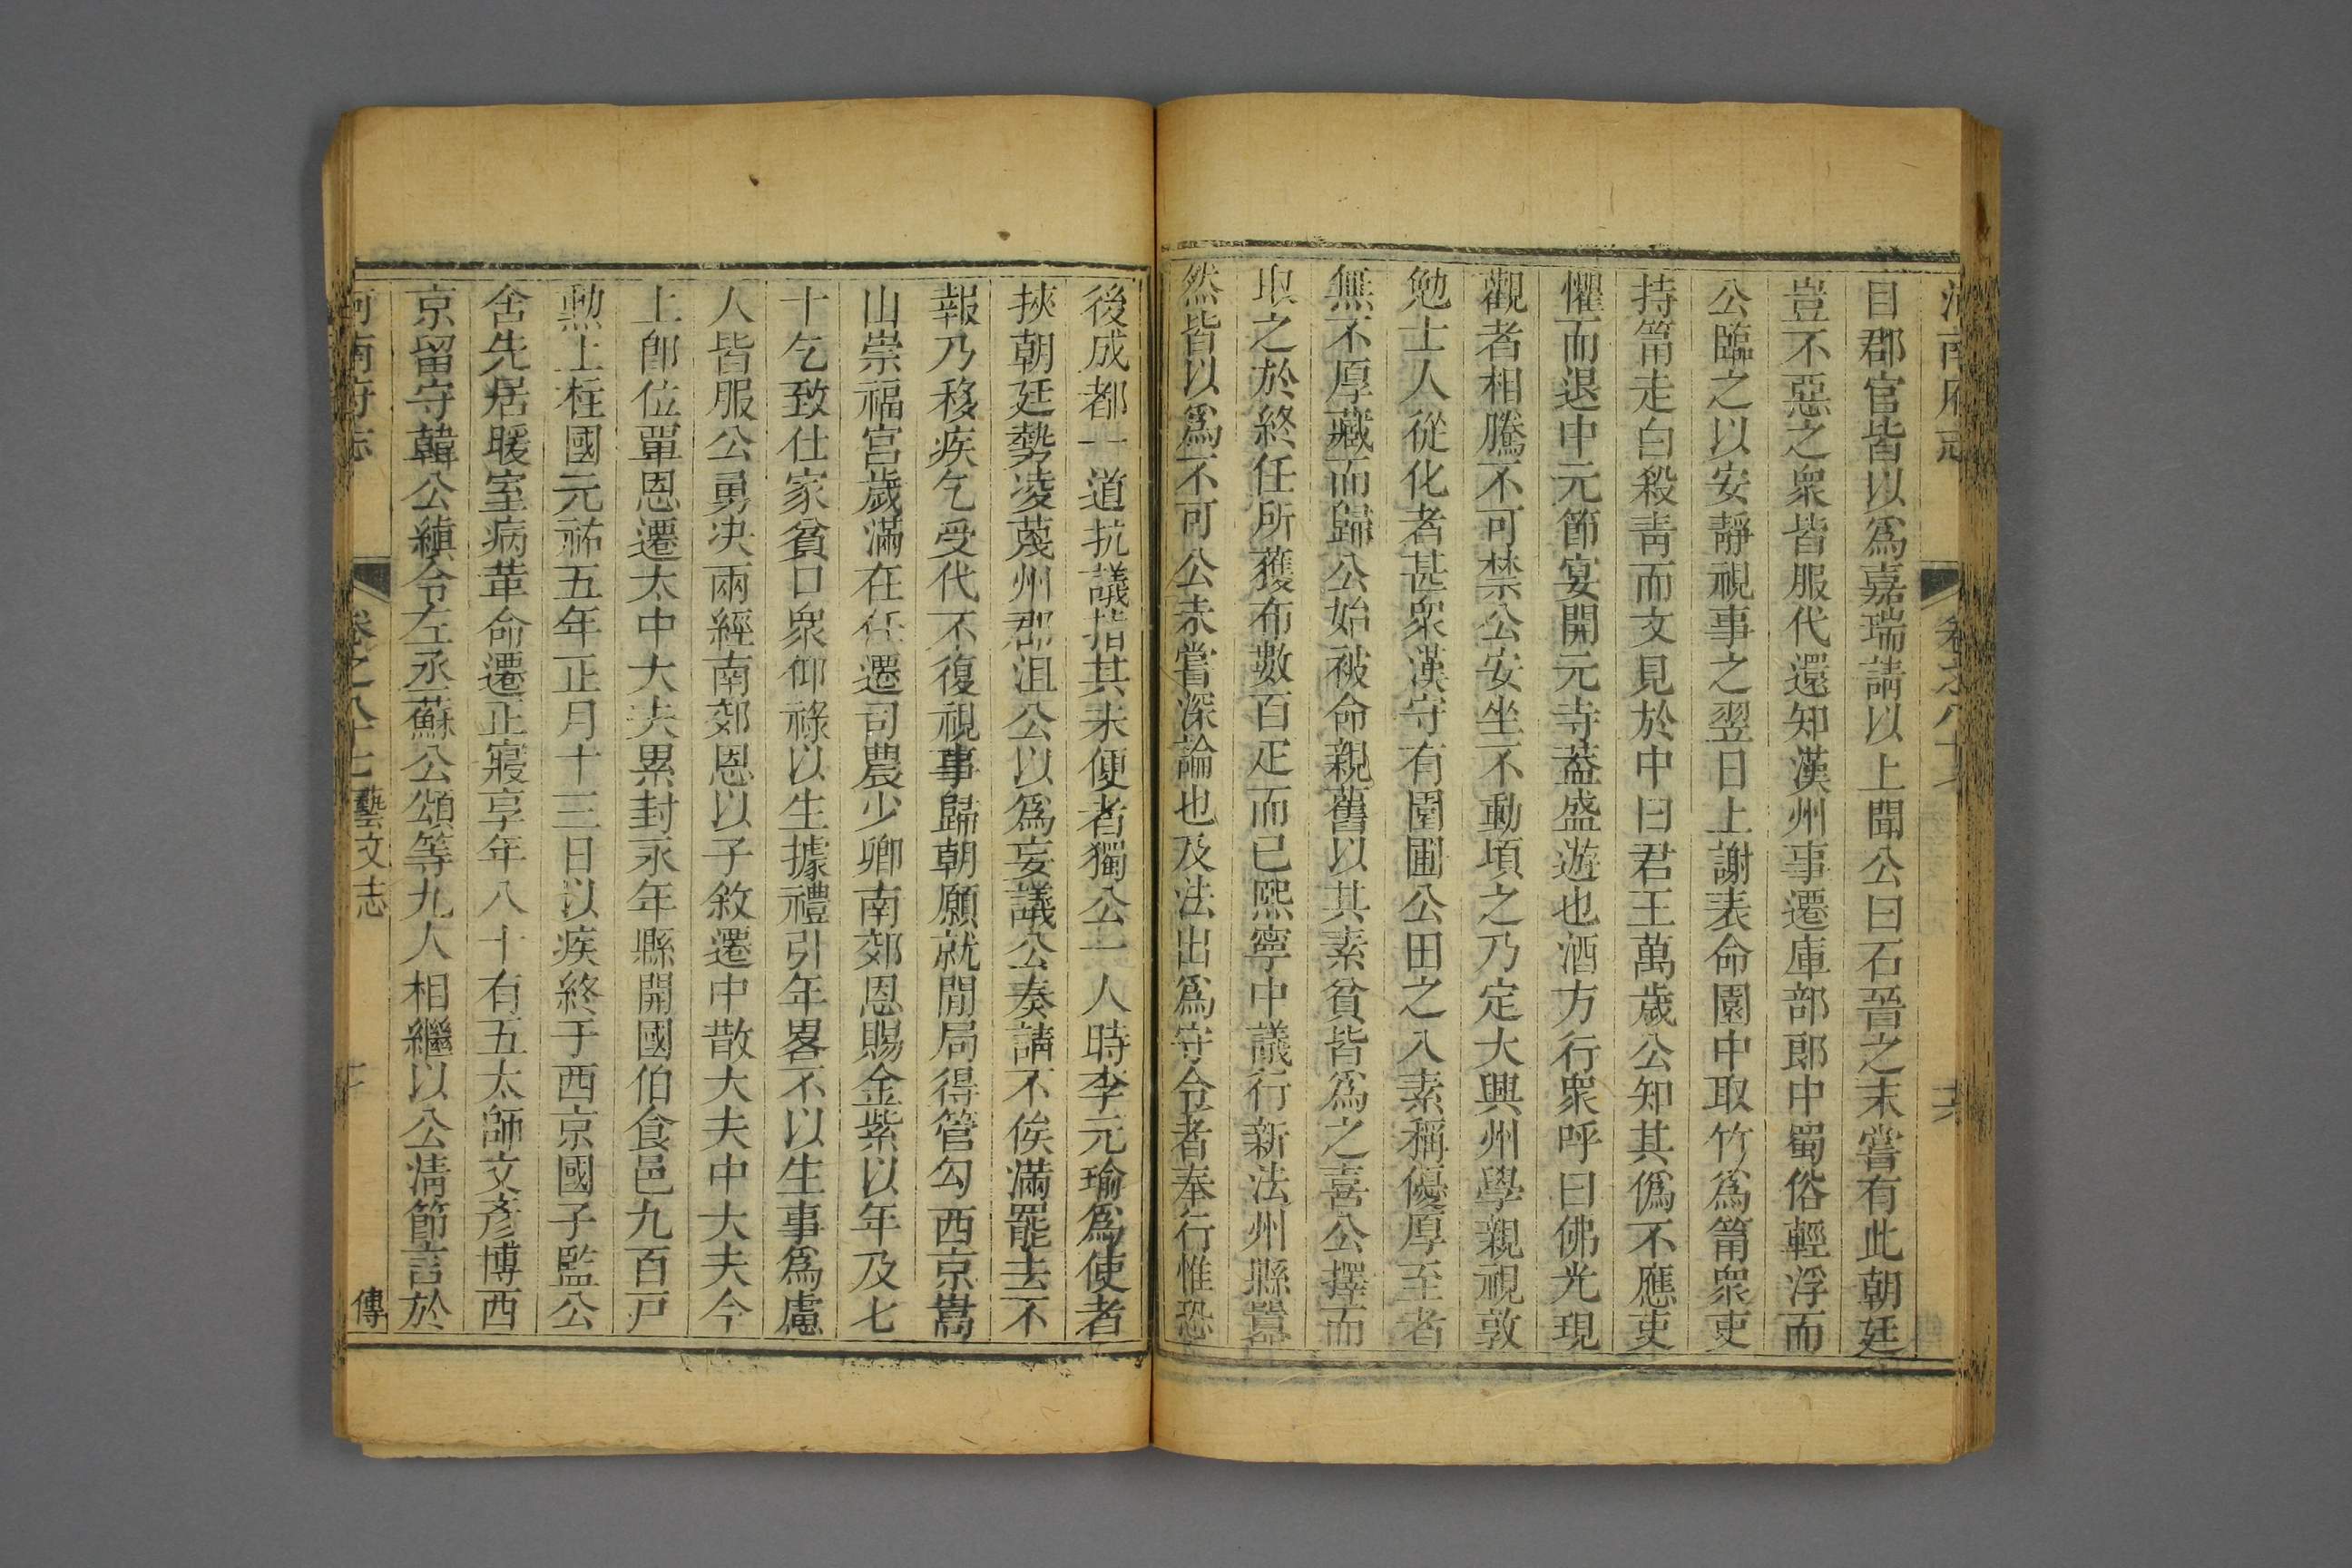 河南府志 卷之八十七 十六
目郡官皆以爲嘉瑞請以上聞公曰石晉之末嘗有此朝廷
豈不惡之衆皆服代還知漢州事遷庫部郎中蜀俗輕浮而
公臨之以安靜視事之翌日上謝表命園中取竹爲筩衆吏
持筩走白殺靑而文見於中曰君王萬歲公知其僞不應吏
懼而退中元節宴開元寺葢盛遊也酒方行衆呼曰佛光現
觀者相騰不可禁公安坐不動頃之乃定大興州學親視敦
勉士人從化者甚衆漢守有園圃公田之入素稱優厚至者
無不厚藏而歸公始被命親舊以其素貧皆爲之喜公擇而
取之於終任所獲布數百疋而已熙寧中議行新法州縣囂
然皆以爲不可公未嘗深論也及法出爲守令者奉行惟恐
後成都一道抗議指其未便者獨公一人時李元瑜爲使者
挾朝廷勢凌蔑州郡沮公以爲妄議公奏請不俟滿罷去不
報乃移疾乞受代不復視事歸朝願就閒局得管勾西京嵩
山崇福宮歲滿在任遷司農少卿南郊恩賜金紫以年及七
十乞致仕家貧口衆仰祿以生據禮引年畧不以生事爲慮
人皆服公勇决兩經南郊恩以子敘遷中散大夫中大夫今
上卽位覃恩遷太中大夫累封永年縣開國伯食邑九百戸
勲上柱國元祐五年正月十三日以疾終于西京國子監公
舍先居暖室病革命遷正寢享年八十有五太師文彥博西
京留守韓公縝今左丞蘇公頌等九人相繼以公淸節言於
河南府志 卷之八十七 藝文志 傳